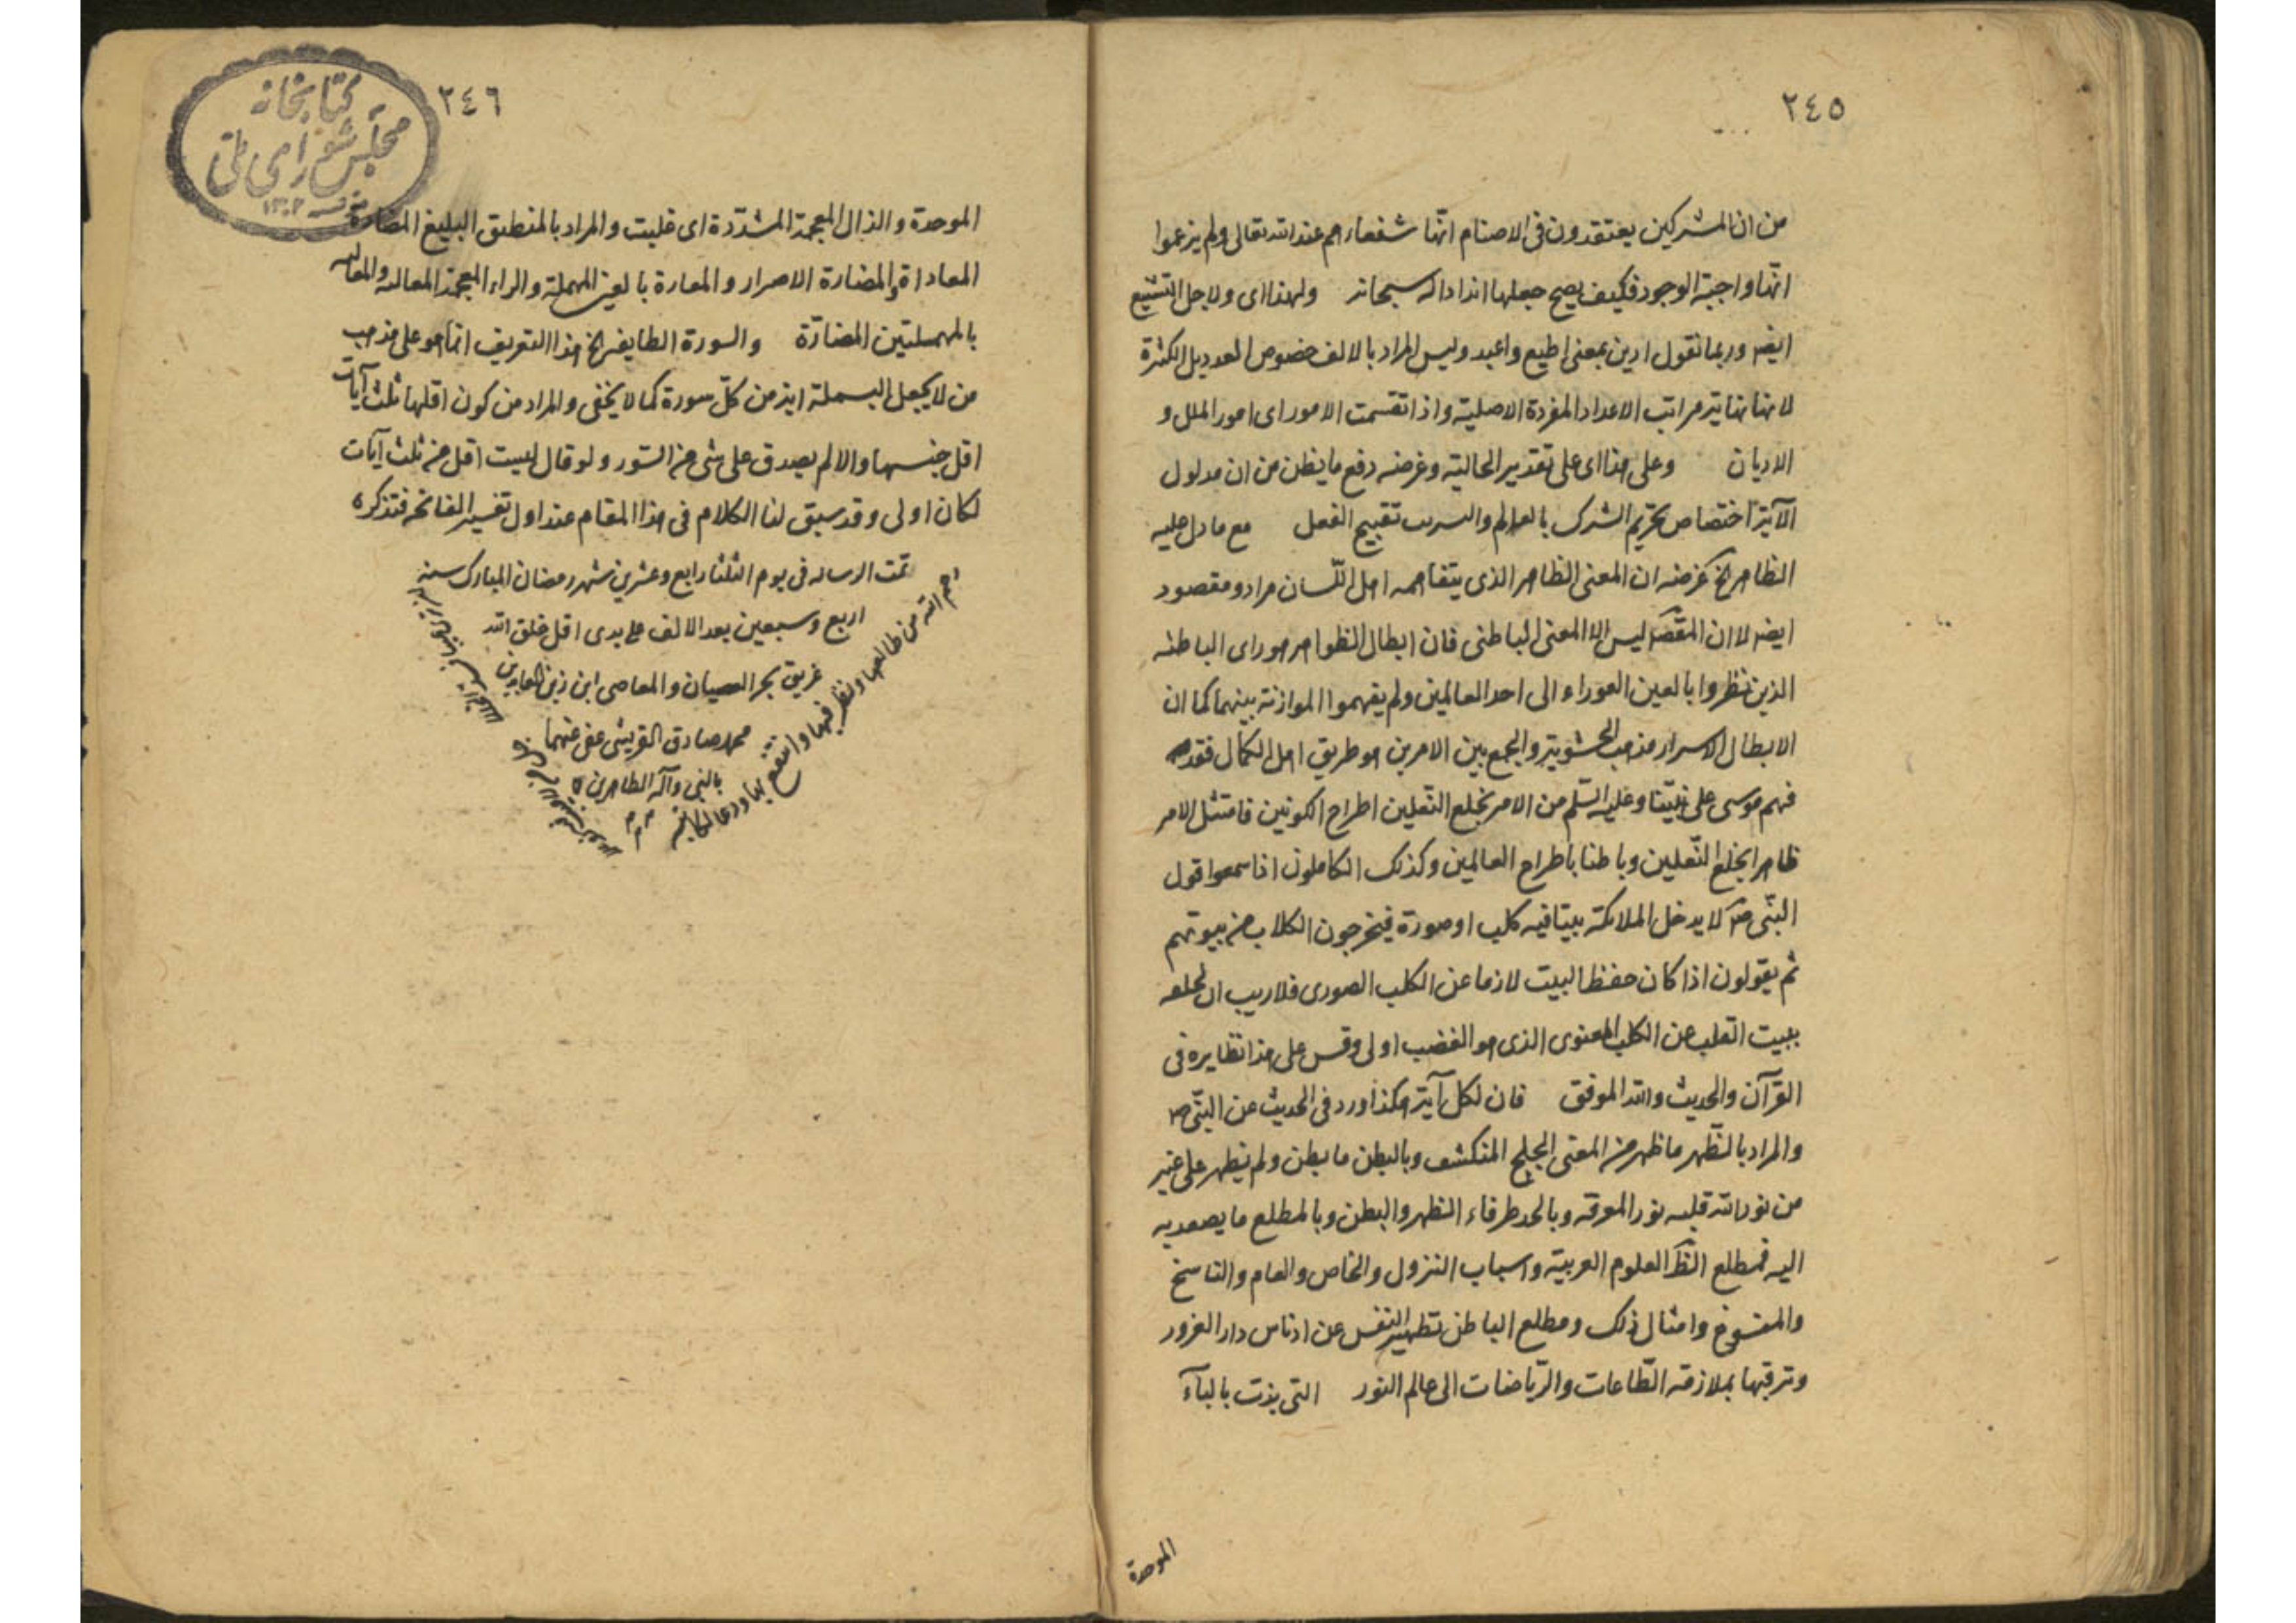 ٢٤٥
من ان المشركين يعتقدون فى الاصنام انها شفعاءهم عند الله تعالى ولم يزعموا
انها واجبة الوجود فكيف يصح جعلها اندادا له سبحانه ولهذا اى ولاجل التشنيع
ايضا وربما نقول ادين بمعنى اطيع واعبد وليس المراد بالالف خصوص العدد بل الكثرة
لانها نهاية مراتب الاعداد المفردة الاصلية واذا تقسمت الامور اى امور الملل و
الاديان وعلى هذا اى على تقدير الحالية وغرضه دفع ما يظن من ان مدلول
الآية اختصاص تحريم الشرك بالعالم تقبيح الفعل مع ما دل عليه
الظاهر الخ غرضه ان المعنى الظاهر الذى يتفاهمه اهل اللسان مراد ومقصود
ايضا لا ان المقصد ليس الا المعنى الباطنى فان ابطال الظواهر هو راى الباطنه
الذين نظروا بالعين العوراء الى احد العالمين ولم يفهموا الموازنة بينهما كما ان
الابطال الاسرار مذهب الحشوية والجمع بين الامرين هو طريق اهل الكمال فقد
فهم موسى على نبينا وعليه السلم من الامر بخلع النعلين اطراح الكونين فامتثل الامر
ظاهرا بخلع النعلين وباطنا باطراح العالمين وكذلك الكاملون اذا سمعوا قول
النبى ص لا يدخل الملائكة بيتا فيه كلب او صورة فيخرجون الكلاب من بيوتهم
ثم يقولون اذا كان حفظ البيت لازما عن الكلب الصورى فلا ريب ان
بيت القلب عن الكلب المعنوى الذى هو الغضب اولى وقس على هذا نظايره فى
القرآن والحديث والله الموفق فان لكل آية هكذا ورد فى الحديث عن النبى ص
والمراد بالظهر ما ظهر من المعنى الجلى المنكشف وبالبطن ما بطن ولم يظهر على غير
من نور الله قلبه نور المعرفه وبالحد طرفاء الظهر والبطن وبالمطلع ما يصعد به
اليه فمطلع الظهر العلوم العربية واسباب النزول والخاص والعام والناسخ
والمنسوخ وامثال ذلك ومطلع الباطن تطهير النفس عن ادناس دار الغرور
وترقيها بملازمة الطاعات والرياضات الى عالم النور التى بذت بالباء
الموحدة
٢٤٦
كتابخانه
مجلس شوراى ملى
١٣٠٢
الموحدة والذال المعجمة المشددة اى غلبت والمراد بالمنطيق البليغ المضارة
المعاداة والمضارة الاصرار والمعارة بالعين المهملة والراء المعجمة
بالمهملتين المضارة والسورة الطايفه الخ هذا التعريف انما هو على مذهب
من لا يجعل البسملة اية من كل سورة كما لا يخفى والمراد من كون اقلها ثلث آيات
اقل جنسها والا لم يصدق على شى من السور ولو قال ليست اقل من ثلث آيات
لكان اولى وقد سبق لنا الكلام فى هذا المقام عند اول تفسير الفاتحه فتذكره
تمت الرساله فى يوم الثلثا رابع وعشرين شهر رمضان المبارك سنه
اربع وسبعين بعد الالف على يدى اقل خلق الله
غريق بحر العصيان والمعاصى ابن زين العابدين
محمد صادق القريشى عفى عنهما
بالنبى وآله الطاهرين
رحم الله من طالعها ونظر فيها وانتفع بها ودعا لكاتبه